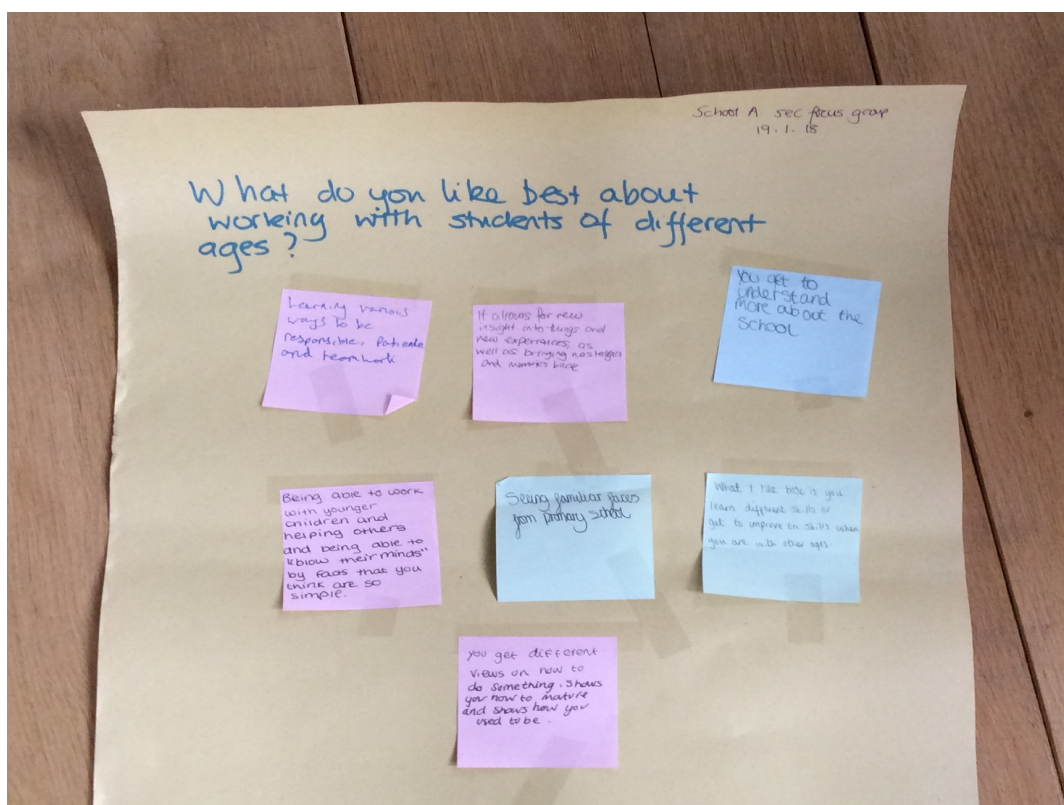 School A sec focus group
19.1.18
What do you like best about
working with students of different
ages?
Learning various
ways to be
responsible, patience
and teamwork
It allows for new
insight into things and
new experiences, as
well as bringing nostalgia
and memories back
You get to
understand
more about the
School
Being able to work
with younger
children and
helping others
and being able to
"blow their minds"
by facts that you
think are so
simple.
Seeing familiar faces
from primary school
What I like best is you
learn different skills or
get to improve on skills when
you are with other ages
you get different
views on how to
do something. Shows
you how to mature
and shows how you
used to be.